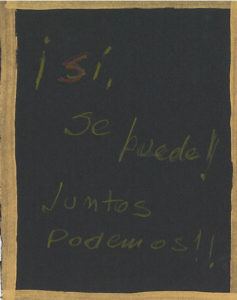 ¡Sí,
se puede!!
Juntos
Podemos!!